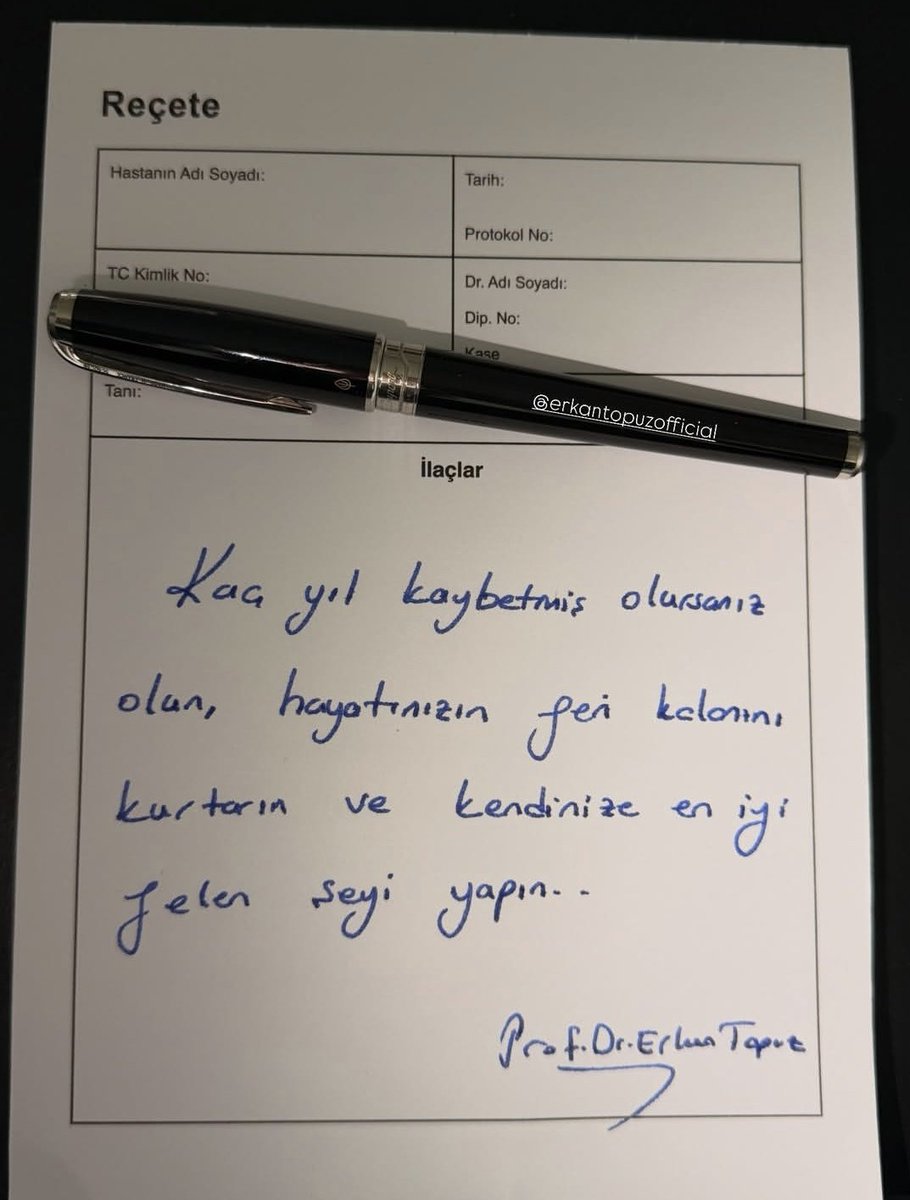 Reçete
Hastanın Adı Soyadı:
Tarih:
Protokol No:
TC Kimlik No:
Dr. Adı Soyadı:
Dip. No:
Kaşe
Tanı:
@erkantopuzofficial
İlaçlar
Kaç yıl kaybetmiş olursanız
olun, hayatınızın geri kalanını
kurtarın ve kendinize en iyi
gelen şeyi yapın..
Prof.Dr.Erkan Topuz